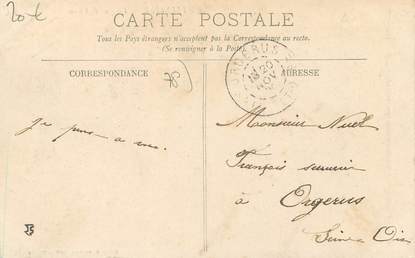 20 €
CARTE POSTALE
Tous les Pays étrangers n'acceptent pas la Correspondance au recto.
(Se renseigner à la Poste)
CORRESPONDANCE
78
ADRESSE
ORGERUS
20
NOV
Je
a
Monsieur
François serrurier
à
Orgerus
Seine & Oise